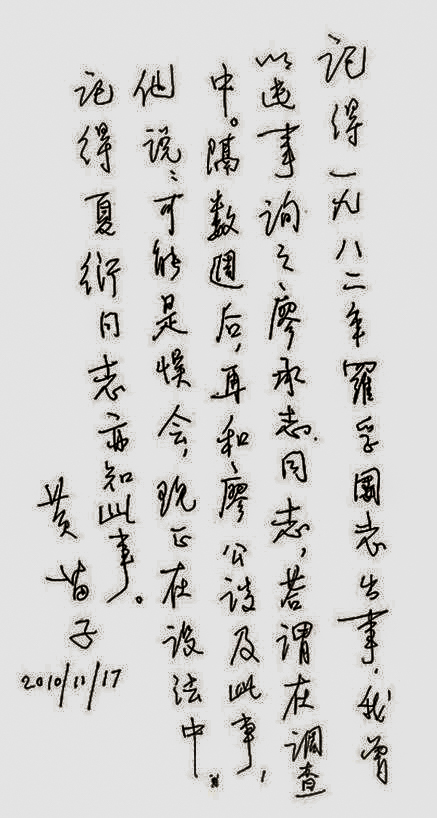 记得一九八二年羅孚國志出事,我曾
以这事询之廖承志同志,答谓在调查
中。隔数週后,再和廖公谈及此事,
他说:可能是误会,现正在设法中。
记得夏衍同志亦知此事。
黄苗子
2010/11/17